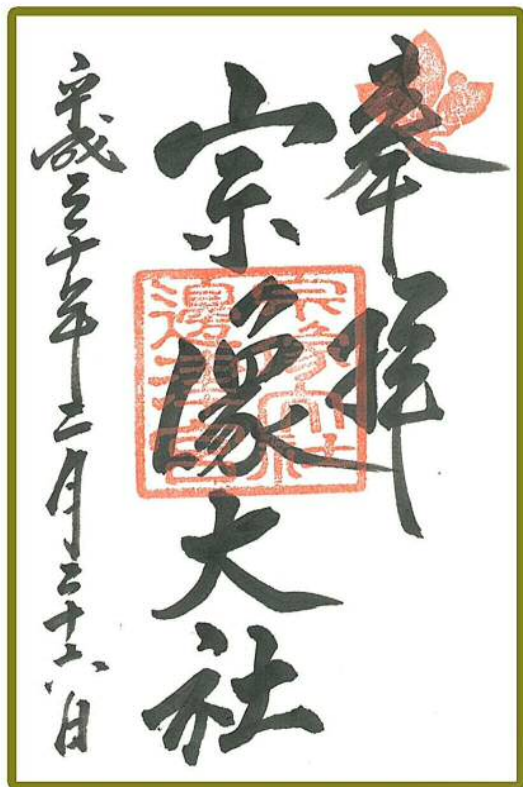 奉拝
宗像大社
宗像大社
邊津宮
平成三十年二月二十六日